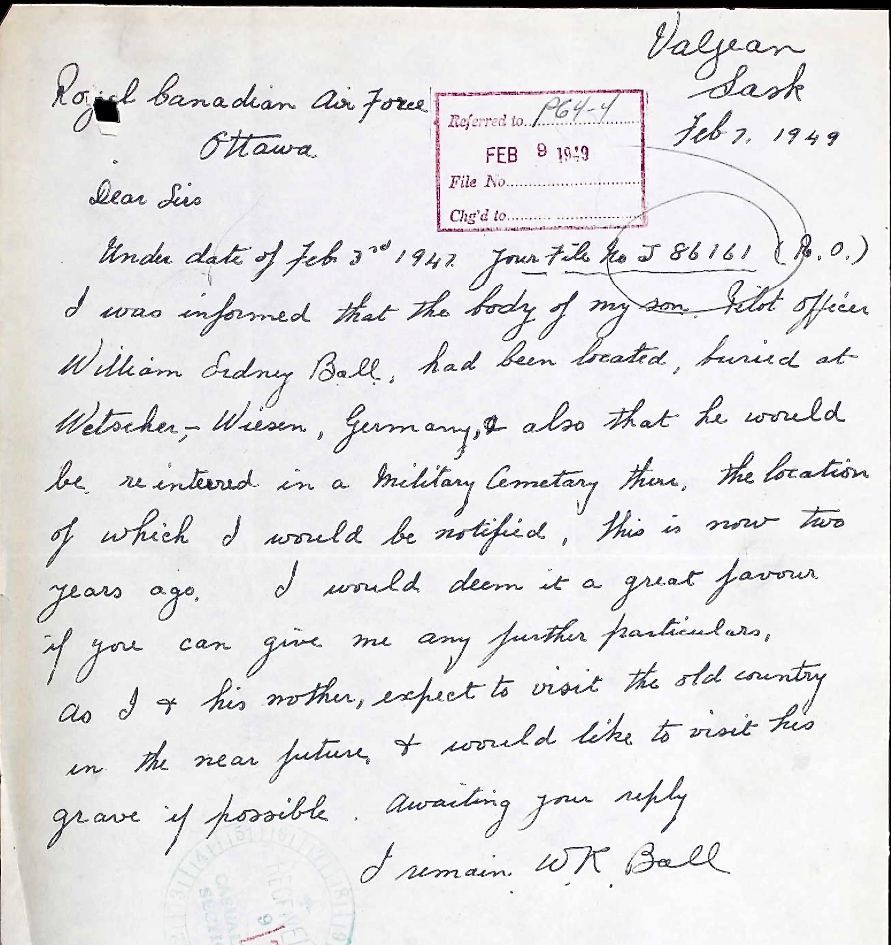 Valjean
Sask
Feb 7, 1949
Royal Canadian Air Force
Ottawa.
Referred to P64-4
FEB 9 1949
File No.
Chg'd to
Dear Sirs
Under date of Feb 3rd 1947 your File No J 86161 (R.O.)
I was informed that the body of my son Pilot officer
William Sidney Ball, had been located, buried at
Wetscher,- Wiesen, Germany, & also that he would
be reinterred in a Military Cemetary there, the location
of which I would be notified, this is now two
years ago. I would deem it a great favour
if you can give me any further particulars,
as I & his mother, expect to visit the old country
in the near future, & would like to visit his
grave if possible. Awaiting your reply
I remain W.K. Ball